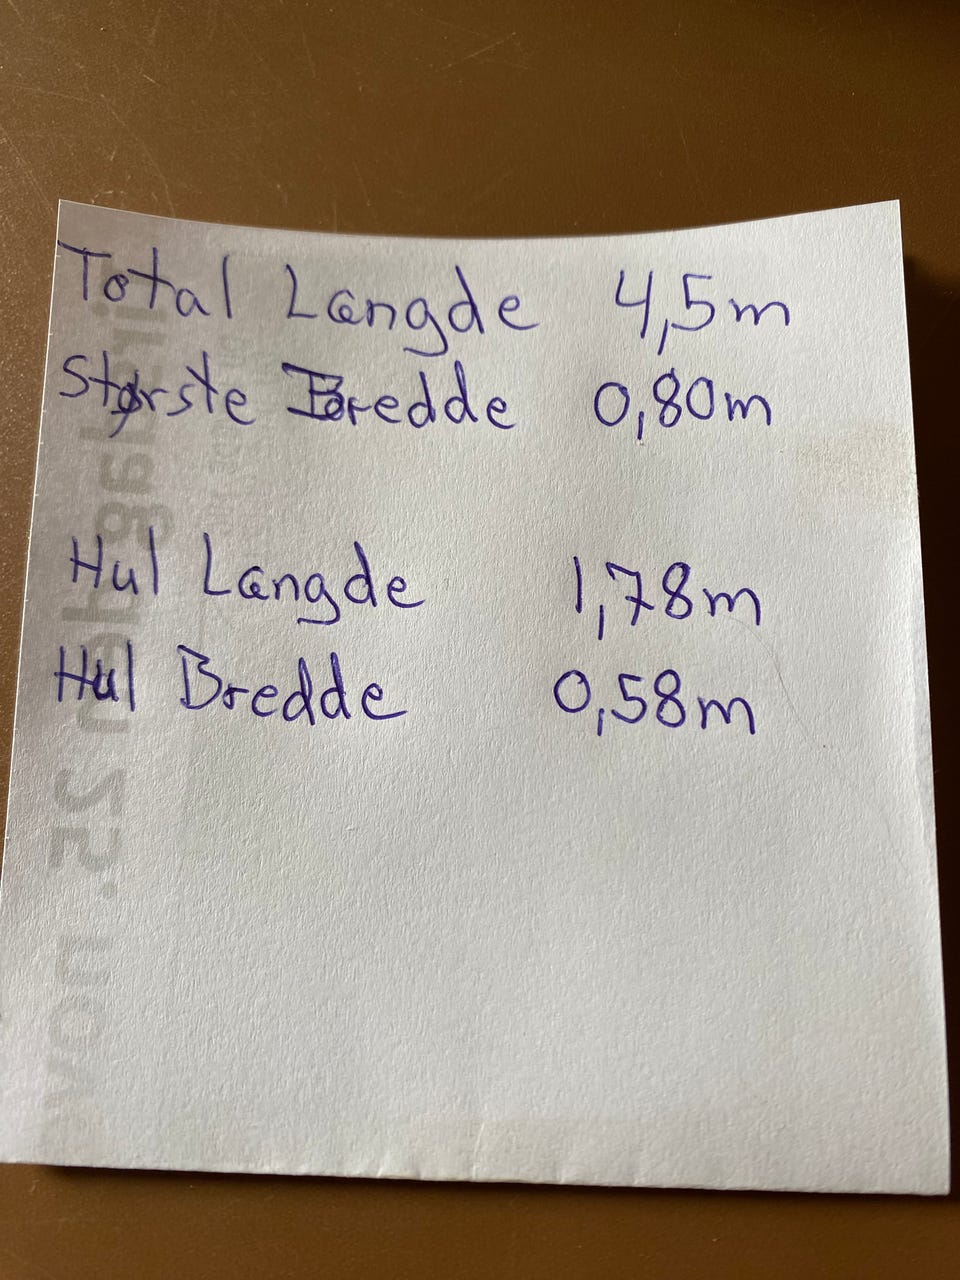 Total Længde 4,5m
Største Bredde 0,80m
Hul Længde 1,78m
Hul Bredde 0,58m